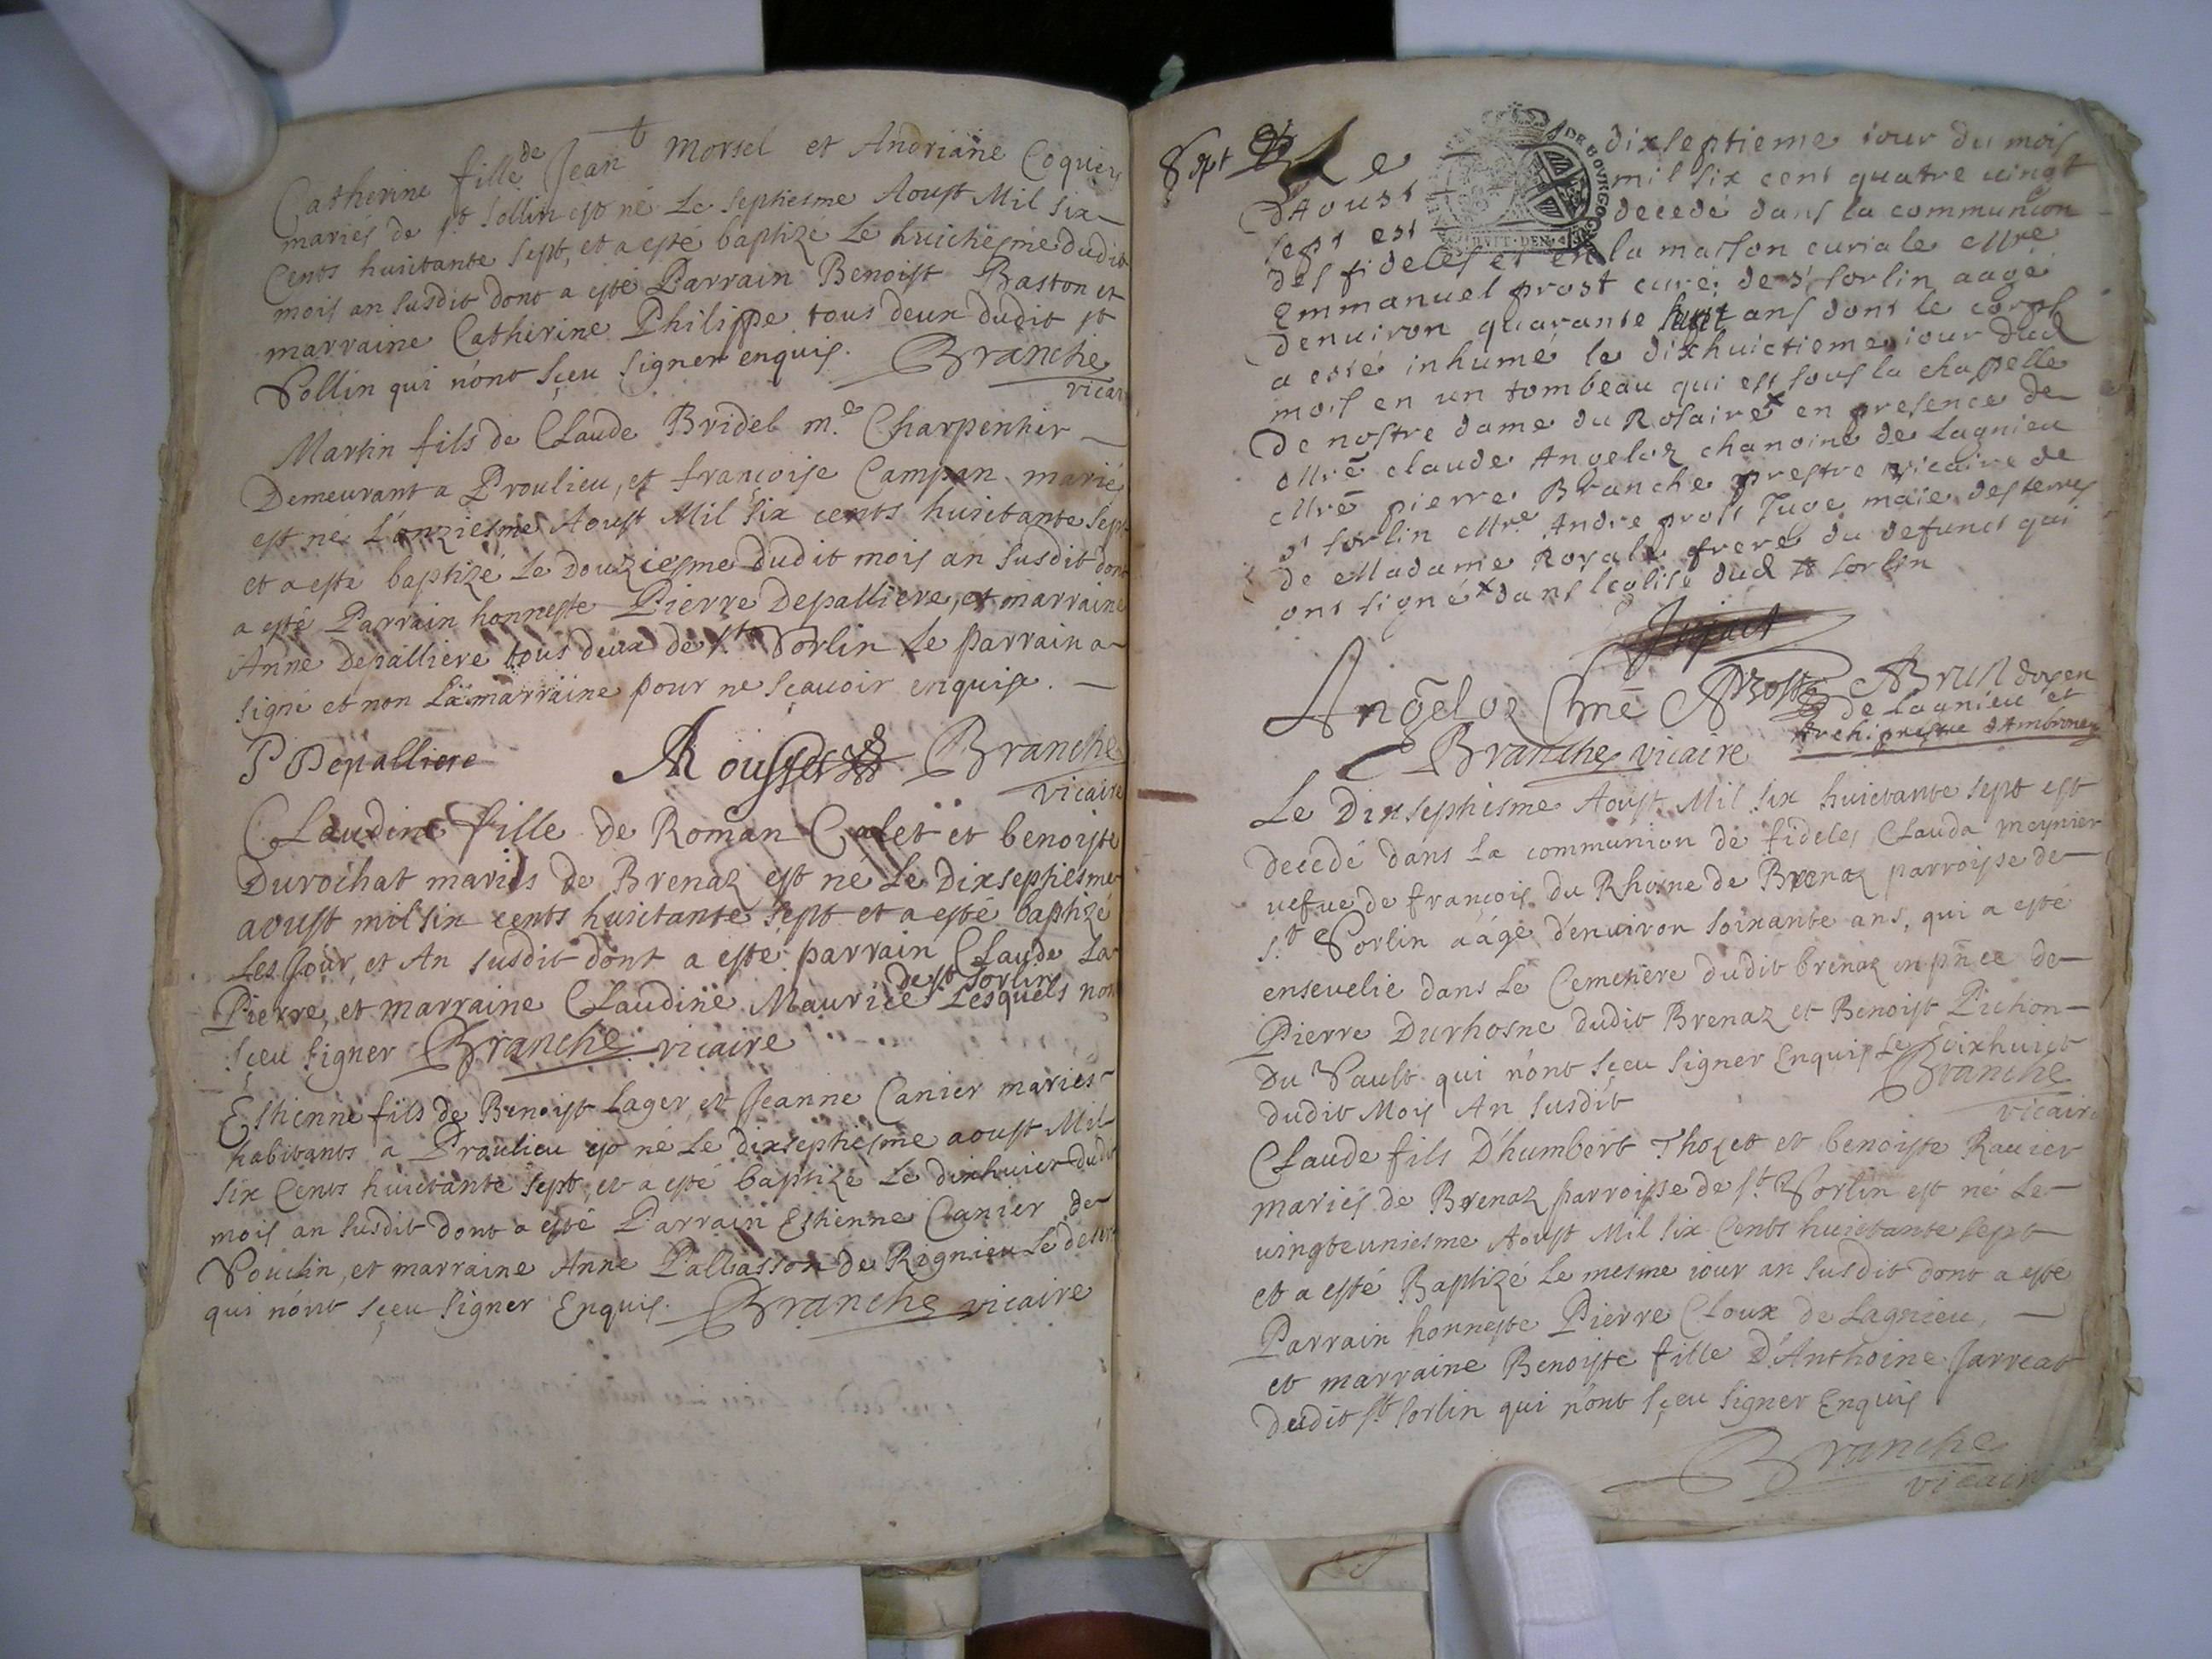 Catherine fille de Jean Morsel et Andriane Coquet
mariés de st Sollin est né Le septiesme Aoust Mil six
Cents huictante sept, et a esté baptizé Le huictiesme dudit
mois an susdit dont a esté Parrain Benoist Baston et
marraine Catherine Philippe tous deux dudit st
Sollin qui n'ont sçeu signer enquis. Branche
vicaire
Martin fils de Claude Bridel me. Charpentier
Demeurant a Proulieu, et françoise Campan marié
est né L'onziesme Aoust Mil six cents huictante sept
et a esté baptizé Le Douziesme dudit mois an susdit dont
a esté Parrain honneste Pierre Depalliere, et marraine
Anne Depalliere tous deux de st Sorlin Le parrain a
signé et non La marraine pour ne sçavoir enquise.
P Depalliere Mousset Branche
vicaire
Claudine fille de Roman Calet et benoiste
Durochat mariés de Brenaz est né Le Dixseptiesme
aoust mil six cents huictante sept et a esté baptizé
Les Jour, et An susdit dont a esté parrain Claude La
de st Sorlin
Pierre, et marraine Claudine Maurice Lesquels n'ont
sçeu signer Branche vicaire
Estienne fils de Benoist Lager, et Jeanne Canier mariés
habitants a Proulieu est né Le dixseptiesme aoust Mil
six Cents huictante sept, et a esté baptizé Le dixhuict dudit
mois an susdit dont a esté Parrain Estienne Canier de
Soudin, et marraine Anne Pallasson de Rognieu Le desert
qui n'ont sçeu signer Enquis. Branche vicaire
Sept Le dixseptieme iour du mois
DE BOVRGO
HVIT DEN
d'Aoust mil six cent quatre vingt
sept est decedé dans la communion
des fideles et en la maison curiale Mre
Emmanuel prost curé de st sorlin aagé
denuiron quarante huit ans dont le corps
a esté inhumé le dixhuictieme iour dud
mois en un tombeau qui est sous la chapelle
de nostre dame du Rosaire x en presence de
Mre claude Angeloz chanoine de Lagnieu
Mre pierre Branche prestre vicaire de
st sorlin Mre Andre prost Juge maie des terres
de Madame Royale frere du defunct qui
ont signé x dans leglise dud st sorlin
Angeloz Chne AProst ABrun doyen
de Lagnieu et
Archiprestre d'Ambronay
Branche vicaire
Le Dixseptiesme Aoust Mil six huictante sept est
decedé dans La communion de fideles Clauda meynier
vefue de françois du Rhosne de Brenaz parroisse de
st Sorlin aâgé d'enuiron soixante ans, qui a esté
ensevelie dans Le Cemetiere dudit brenaz en pnce de
Pierre Durhosne dudit Brenaz et Benoist Pichon
Du Sault qui n'ont sçeu signer Enquis Le dixhuict
dudit Mois An susdit Branche
vicaire
Claude fils D'humbert Thozet et benoiste Ravier
mariés de Brenaz parroisse de st Sorlin est né Le
vingteuniesme Aoust Mil six Cents huictante sept
et a esté Baptizé Le mesme iour an susdit dont a esté
Parrain honneste Pierre Cloux de Lagnieu,
et marraine Benoiste fille D'Anthoine Jarreat
dudit st Sorlin qui n'ont sçeu signer Enquis
Branche
vicaire